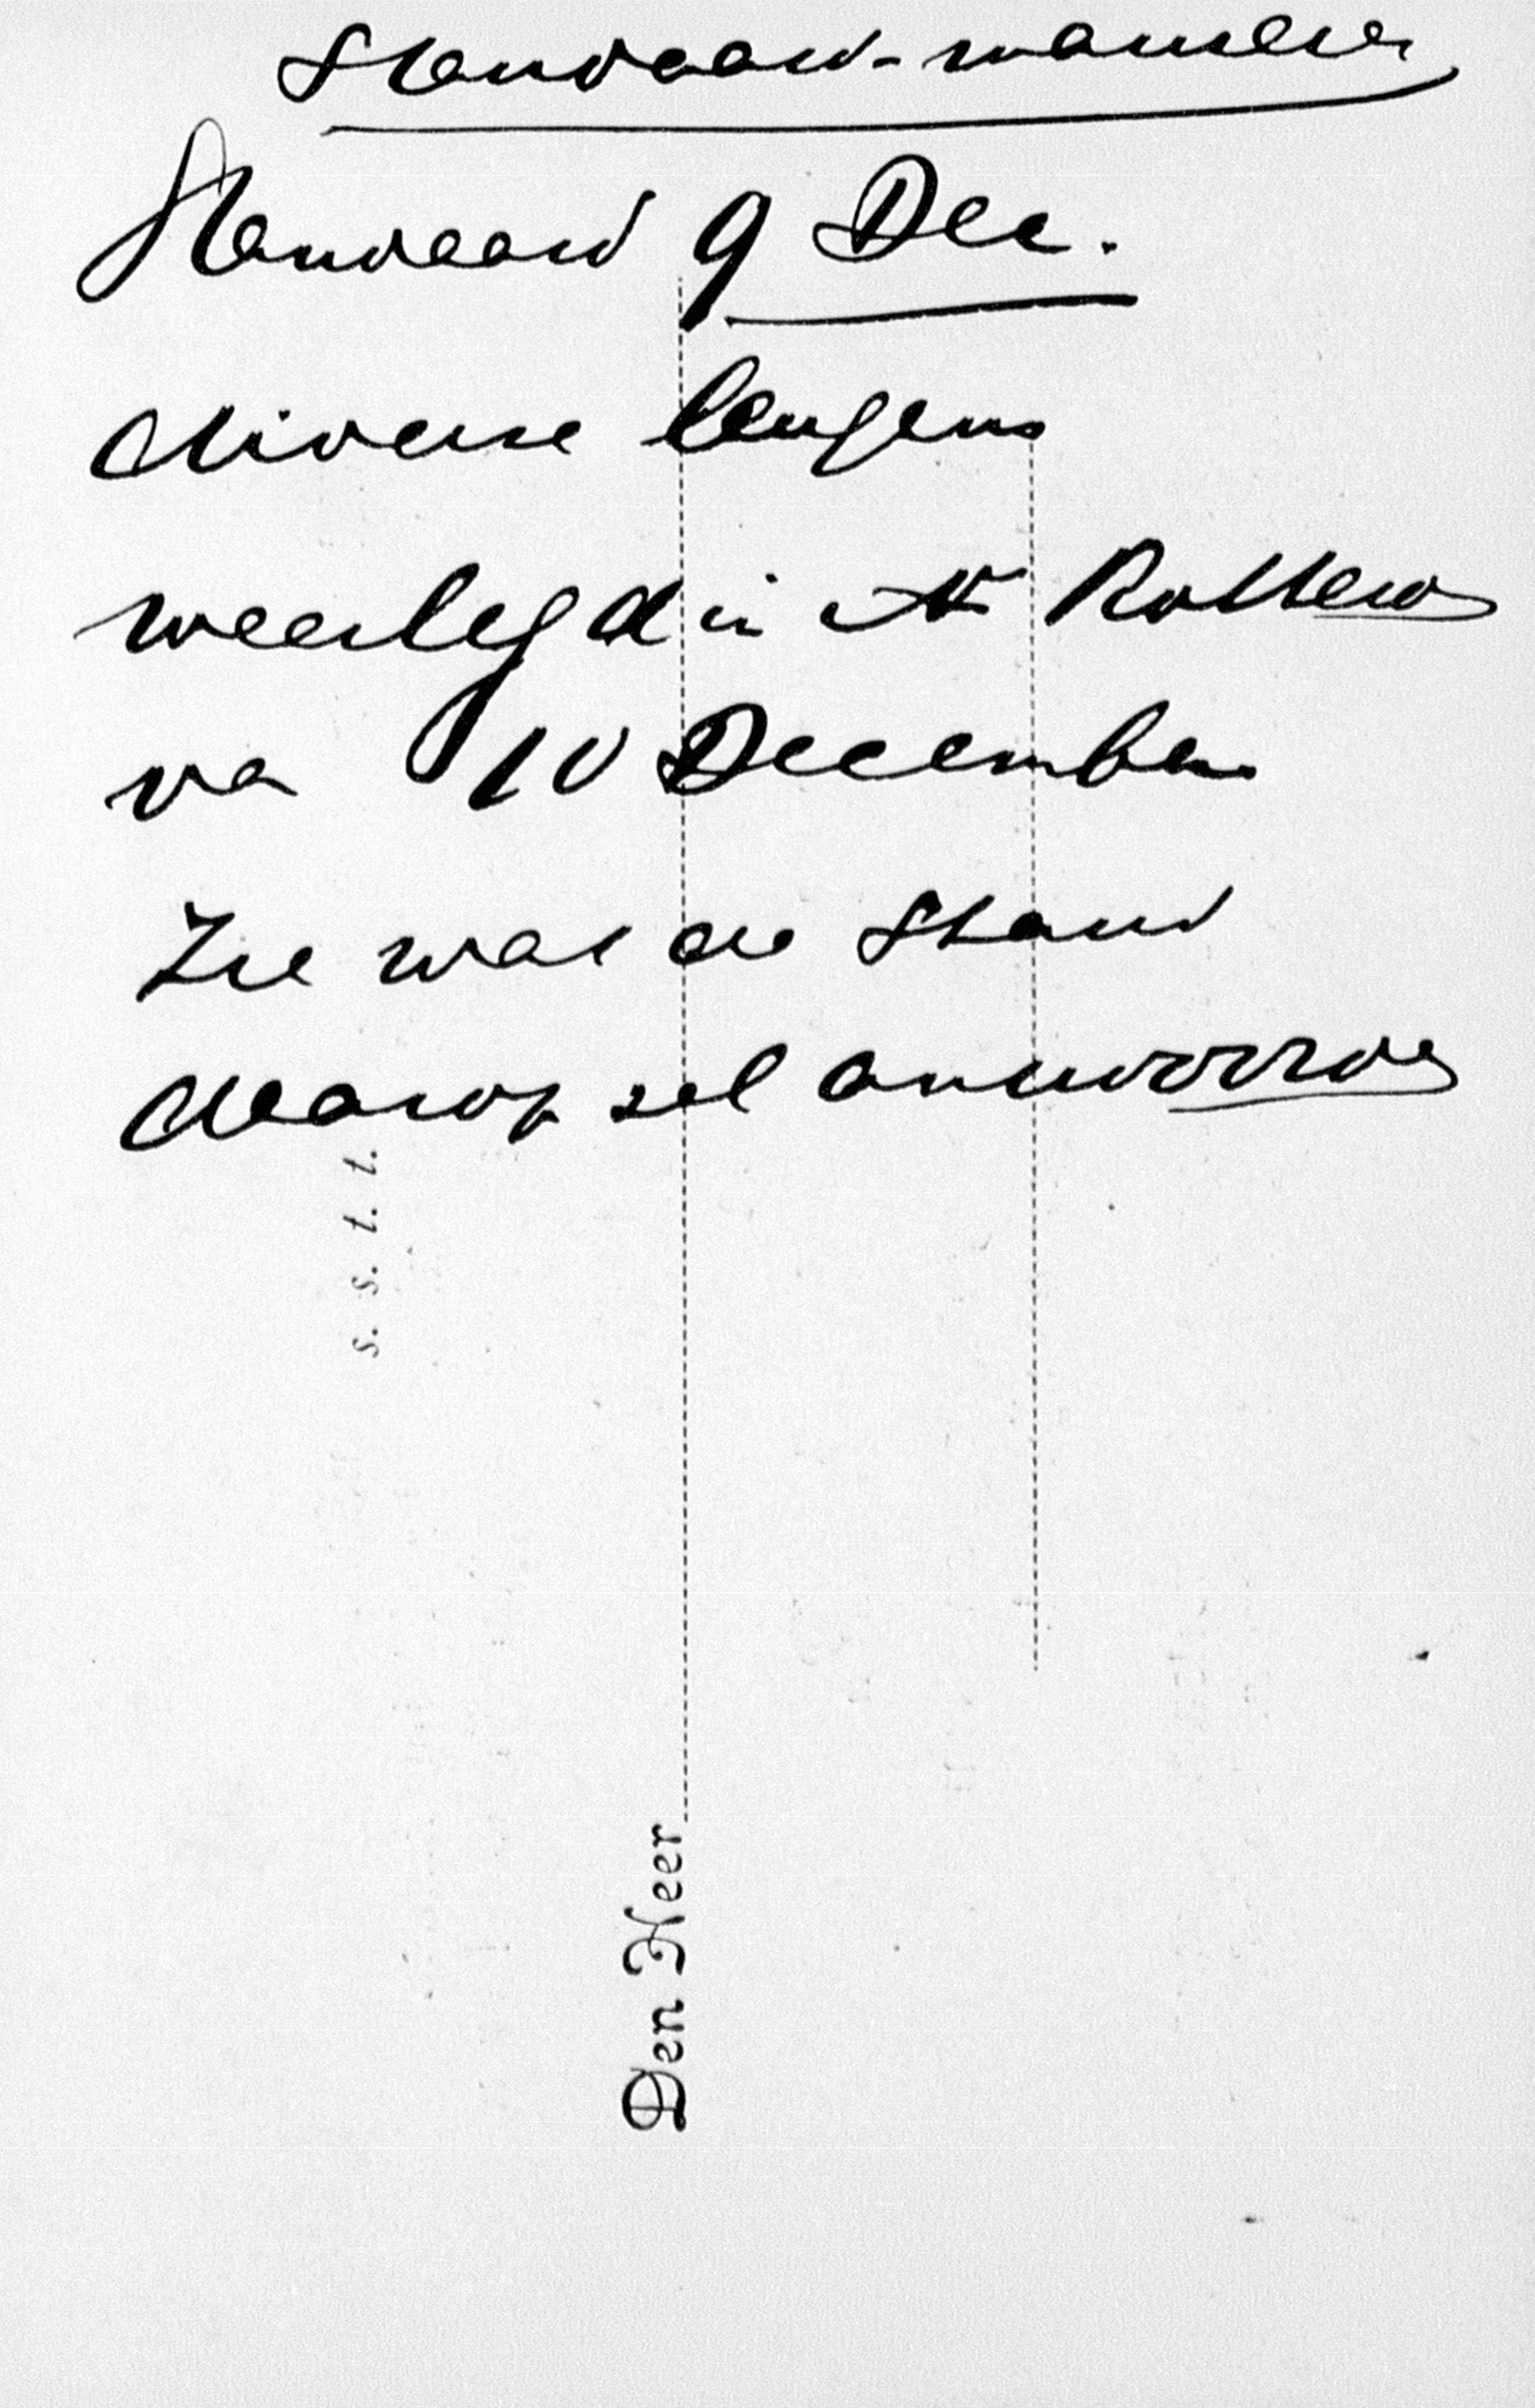 Standaard-manieren
Standaard 9 Dec.
diverse leugens
weerlegd in N Rotterd
va 10 December
Zie wat de Stand
daarop zal antwoorden
s. s. t. t.
Den Heer